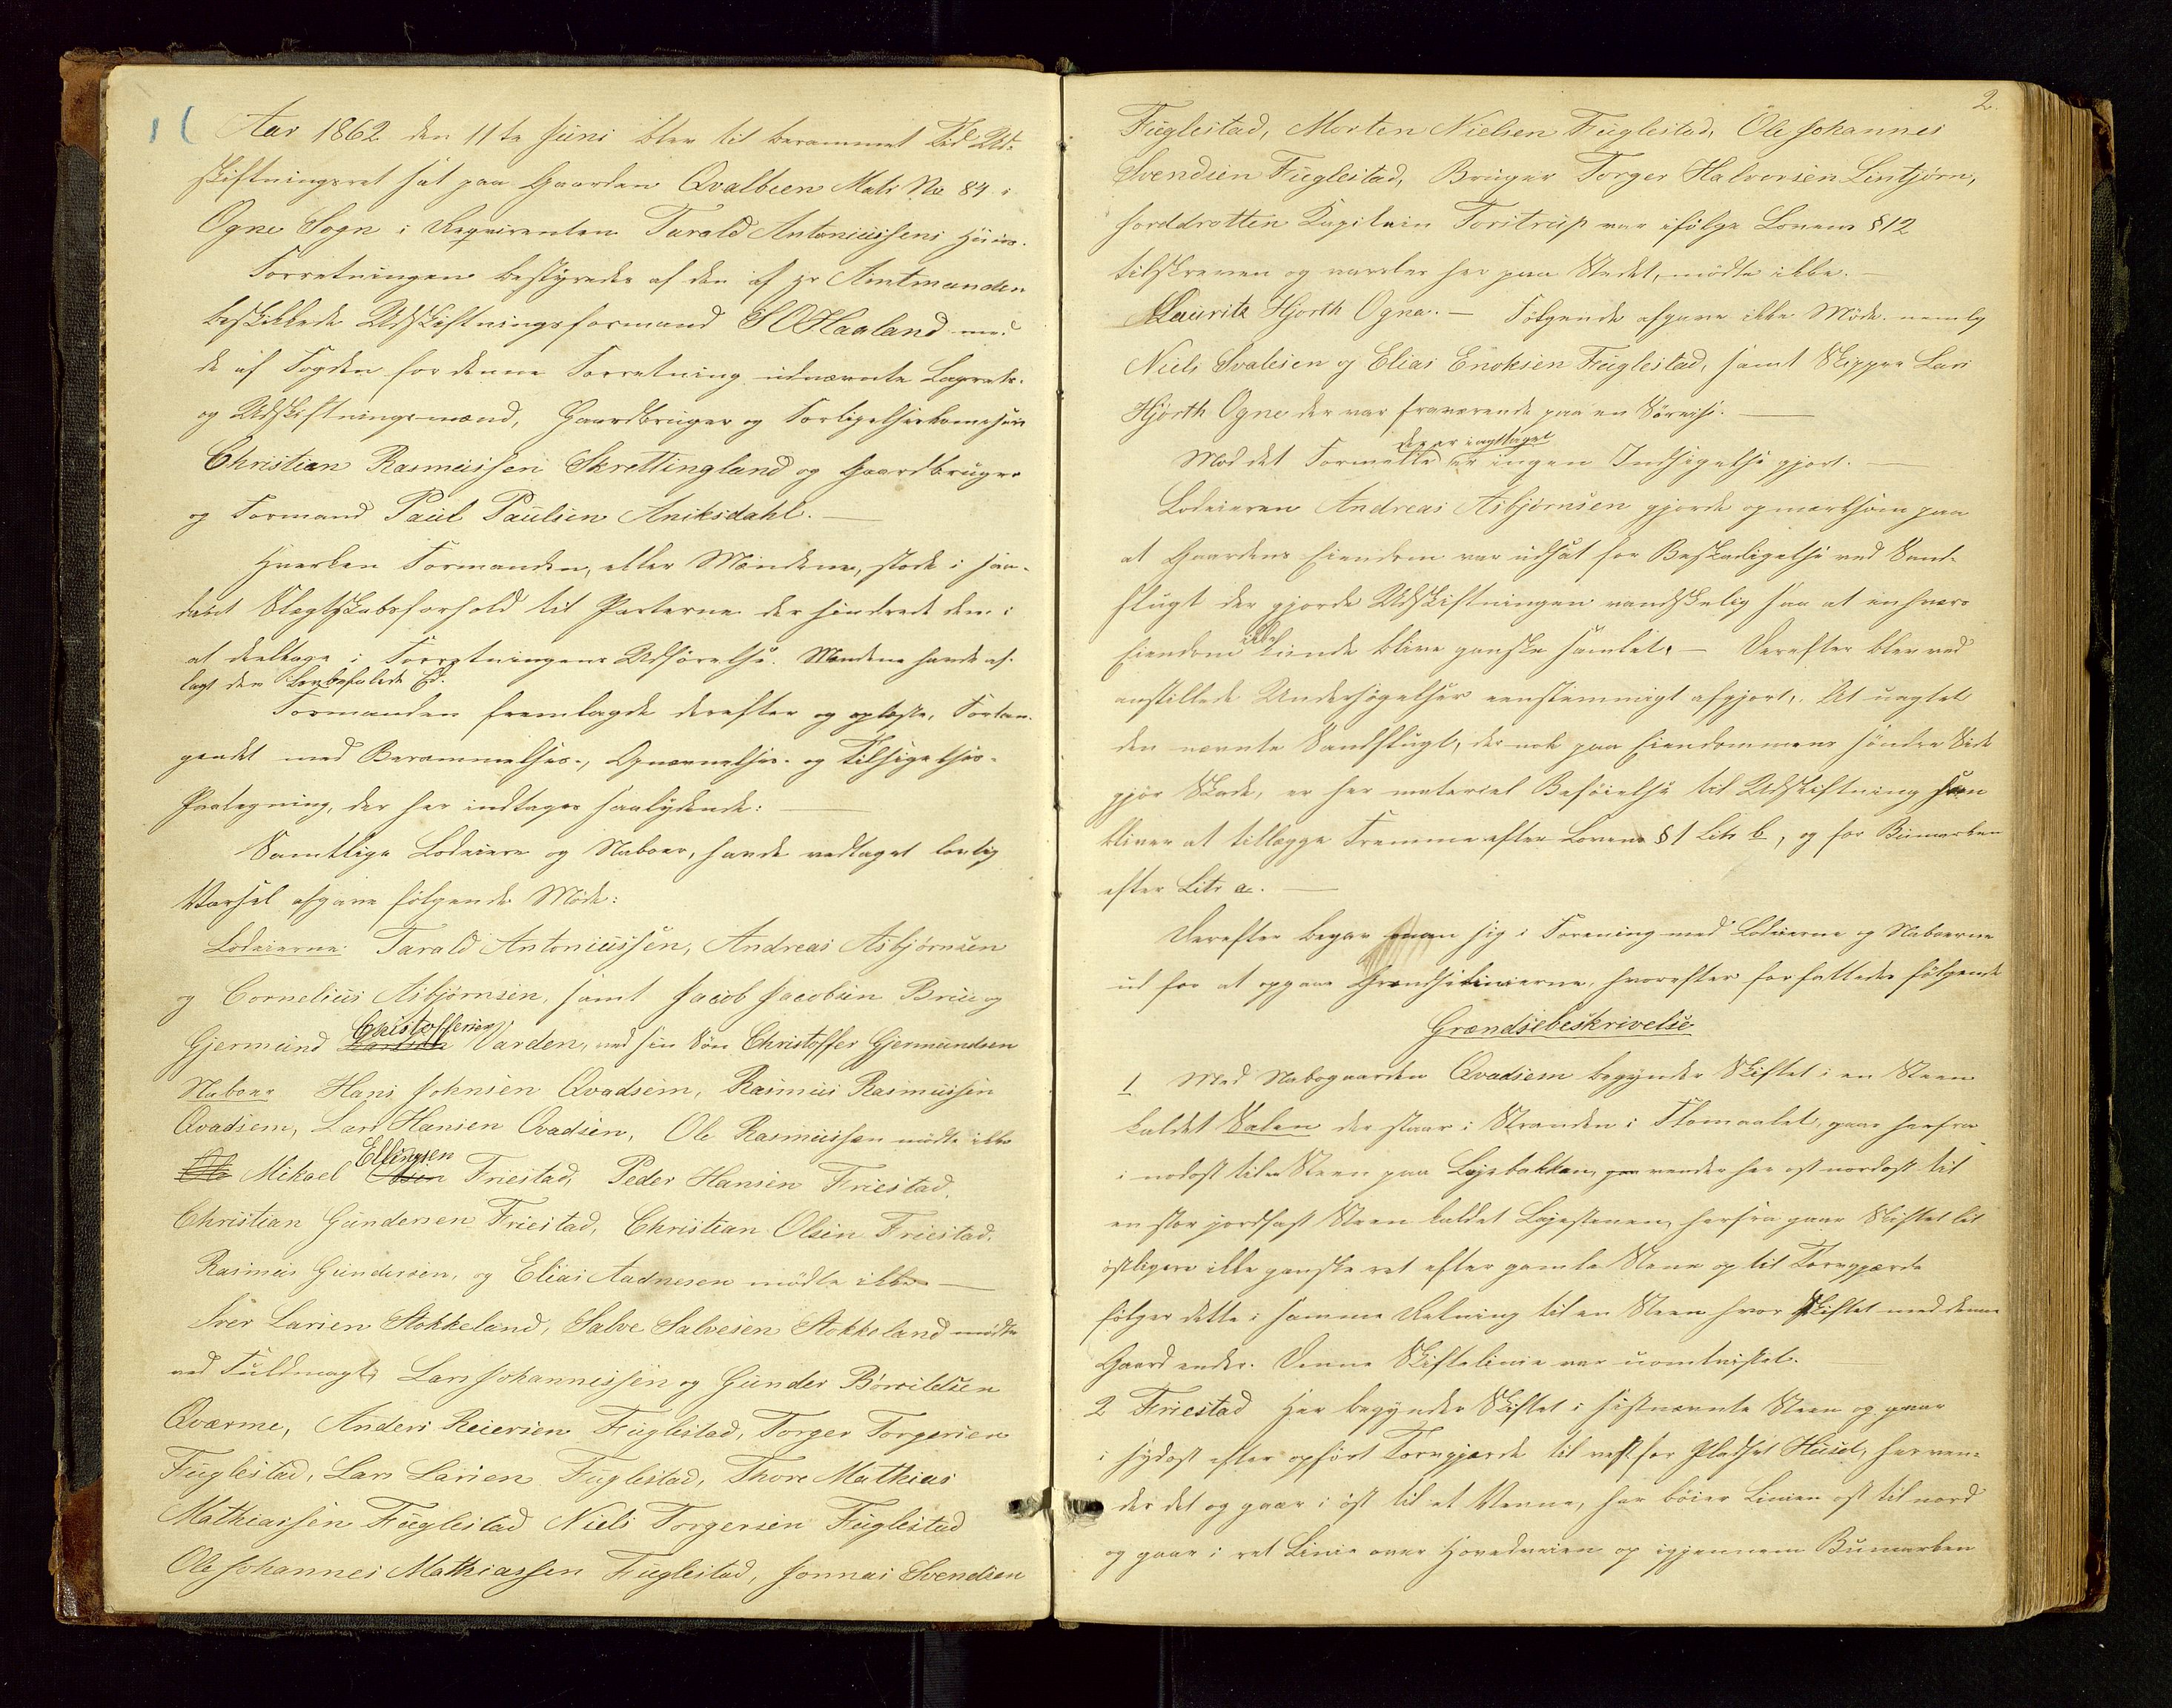 1 (
Aar 1862 den 11te Juni blev til berammet Tid Ud-
skiftningsret sat paa Gaarden Qvalbein Matr No 84 i
Ogne Sogn i Reqvirenten Tarald Antoniussens Huus.
Forretningen bestyredes af den af Hr Amtmanden
beskikkede Udskiftningsformand S O Haaland med
de af Fogden for denne Forretning udnævnte Lagrets-
og Udskiftningsmænd, Gaardbruger og Forligelseskomissær
Christian Rasmussen Skrettingland og Gaardbruger
og Formand Paul Paulsen Aniksdahl. —
Hverken Formanden, eller Mændene, stode i saa-
dant Slægtskabsforhold til Parterne der hindrede dem i
at deeltage i Forretningens Udførelse. Mændene havde af-
lagt den lovbefalede Ed.
Formanden fremlagde derefter og oplæste, Forlan-
gendet med Berammelses-, Opnævnelses- og Tilsigelses-
Paategning, der her indtages saalydende: —
Samtlige Lodeiere og Naboer, havde vedtaget lovlig
Varsel afgave følgende Møde:
Lodeierne: Tarald Antoniussen, Andreas Asbjørnsen
og Cornelius Asbjørnsen, samt Jacob Jacobsen Brue og
Gjermund Christoffersen Varden, ved sin Søn Christoffer Gjermundsen
Naboer Hans Johnsen Qvadsem, Rasmus Rasmussen
Qvadsem, Lars Hansen Qvadsem, Ole Rasmussen mødte ikke
Ole Mikael Ellingsen Olsen Friestad, Peder Hansen Friestad,
Christian Gundersen Friestad, Christian Olsen Friestad,
Rasmus Gundersen, og Elias Aadnesen mødte ikke —
Iver Larsen Stokkeland, Salve Salvesen Stokkeland mødte
ved Fuldmagt, Lars Johannessen og Gunder Børvildsen
Qværme, Anders Reiersen Fuglestad, Torger Torgersen
Fuglestad, Lars Larsen Fuglestad, Thore Mathias
Mathiassen Fuglestad Niels Torgersen Fuglestad
Ole Johannes Mathiassen Fuglestad, Jonnas Svendsen
2.
Fuglestad, Morten Nielsen Fuglestad, Ole Johannes
Svendsen Fuglestad, Bruger Torger Halvorsen Lintjørn,
Jorddrotten Kapitain Torstrup var ifølge Lovens § 12
tilskreven og varslet her paa Stedet, mødte ikke. —
Lauritz Hjorth Ogna. — Følgende afgave ikke Møde. nemlig
Niels Svalesen og Elias Enoksen Fuglestad, samt Skipper Lars
Hjorth Ogne der var fraværende paa en Søreise. —
Mod det Formelle der er iagttaget er ingen Indsigelse gjort. —
Lodeieren Andreas Asbjørnsen gjorde opmærksom paa
at Gaardens Eiendom var udsat for Beskadigelse ved Sand-
flugt der gjorde Udskiftningen vanskelig saa at enhvers
Eiendom ikke kunde blive ganske samlet. — Derefter blev ved
anstillede Undersøgelser eenstemmigt afgjort, At uagtet
den nævnte Sandflugt, der nok paa Eiendommens søndre Side
gjør Skade, er her materiel Beføielse til Udskiftning som
bliver at tillægge Fremme efter Lovens § 1 Litr b, og for Bumarken
efter Litr a. —
Derefter begav man sig i Forening med Lodeierne og Naboerne
ud for at opgaae Grændselinierne, hvorefter forfattedes følgende
Grændsebeskrivelse
1 Med Nabogaarden Qvadsem begynder Skiftet i en Steen
kaldet Salen der staar i Stranden i Flomaalet, gaar herfra
i nodost til en Steen paa Lejebakken, vender her ost nordost til
en stor jordfast Steen kaldet Lejestenen, herfra gaar Skiftet lit
østligere ikke ganske ret efter gamle Stene op til Torvgjærde
følger dette i samme Retning til en Steen hvor Skiftet med denne
Gaard ender. Denne Skiftelinie var uomtvistet.
2 Friestad Her begynder Skiftet i sistnævnte Steen og gaar
i sydost efter opført Torvgjærde til vest for Pladset Huset, her ven-
der det og gaar i øst til et Vanne, her bøier Linien ost til nord
og gaar i ret Linie over Hovedveien op igjennem Bumarken